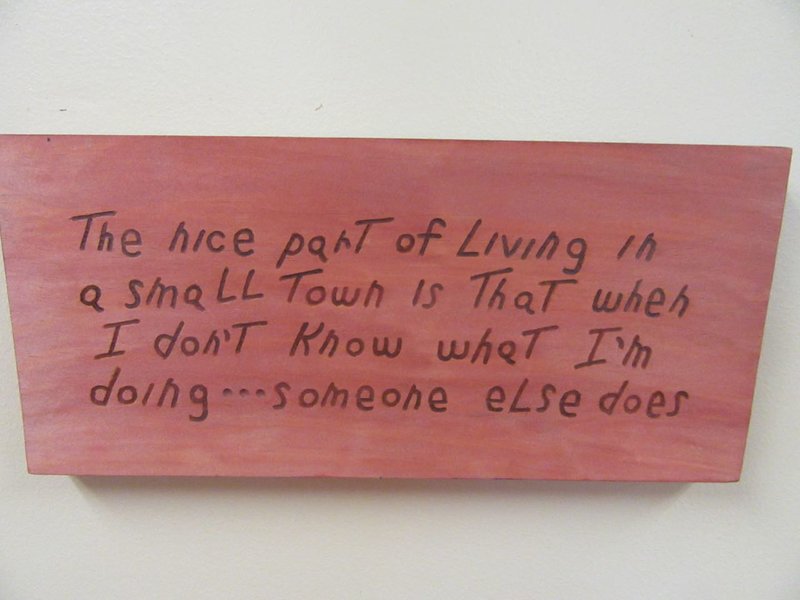 The nice part of Living in
a smaLL Town is That when
I don't Know what I'm
doing...someone eLse does